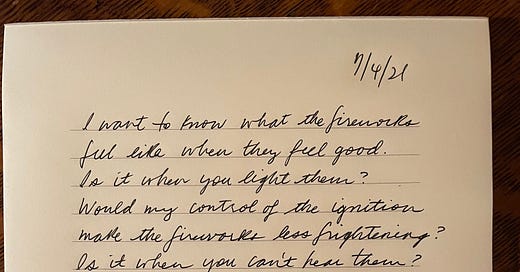 7/4/21
I want to know what the fireworks
feel like when they feel good.
Is it when you light them?
Would my control of the ignition
make the fireworks less frightening?
Is it when you can't hear them?